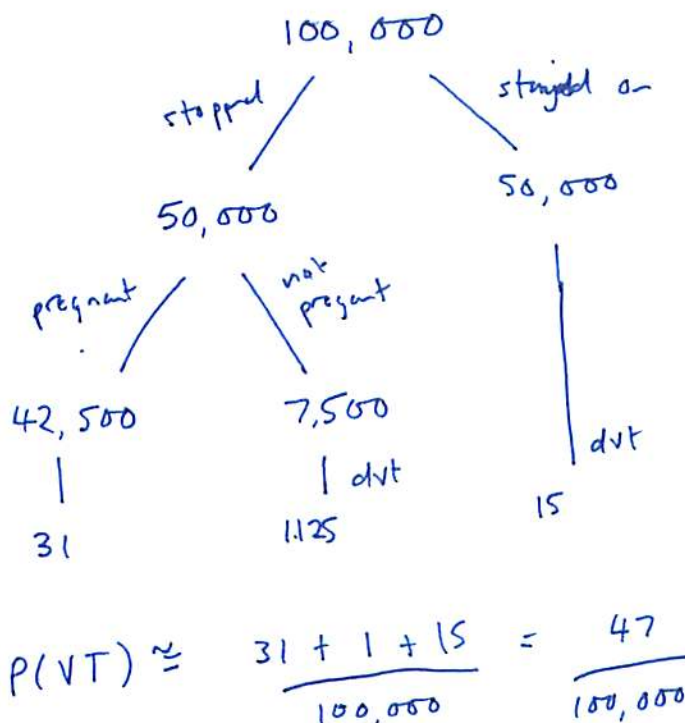 100,000
stopped
stayed on
50,000
50,000
pregnant
not
pregant
42,500
7,500
dvt
dvt
31
1.125
15
P(VT) ≅ 31 + 1 + 15 / 100,000 = 47 / 100,000